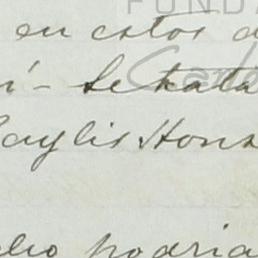 FUNDA
en estos d
í - Se trata
Caylis Hons
dio podria